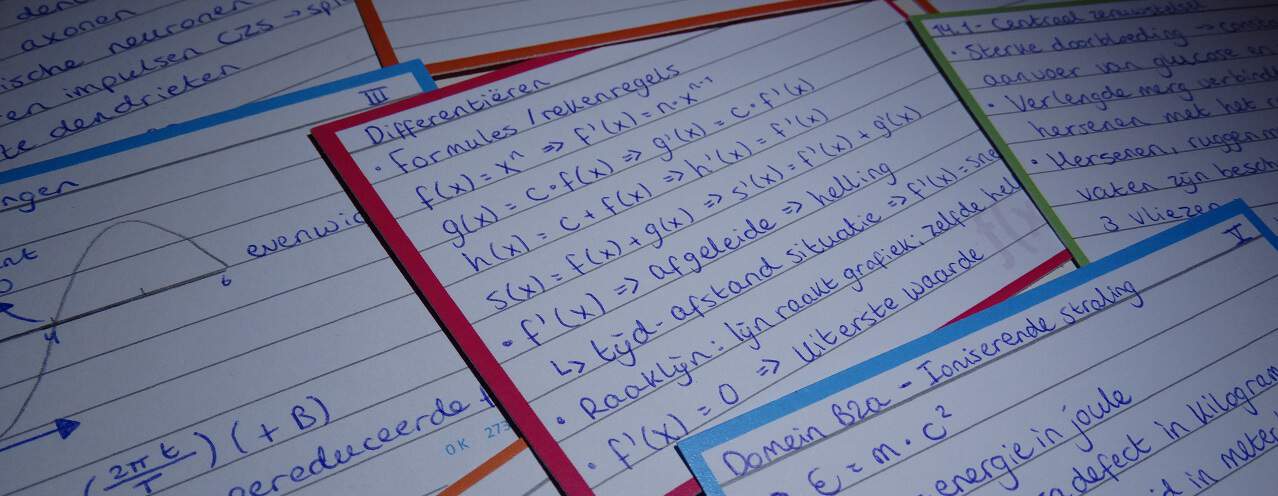 axonen
ische neuronen
en impulsen CZS →
te dendrieten
III
ngen
evenwic
4
6
(2π t / T) (+ B)
gereduceerde
OK 273
Differentiëren
• Formules / rekenregels
f(x) = xⁿ => f'(x) = n · xⁿ⁻¹
g(x) = c · f(x) => g'(x) = c · f'(x)
h(x) = c + f(x) => h'(x) = f'(x)
s(x) = f(x) + g(x) => s'(x) = f'(x) + g'(x)
• f'(x) => afgeleide => helling
↳ tijd-afstand situatie => f'(x) = sne
• Raaklijn: lijn raakt grafiek; zelfde hel
• f'(x) = 0 => uiterste waarde
14.1 - Centraal zenuwstelsel
• Sterke doorbloeding → const
aanvoer van glucose en
• Verlengde merg verbind
hersenen met het r
• Hersenen, ruggenm
vaten zijn besch
3 vliezen
II
Domein B2a - Ioniserende straling
E = m · c²
energie in joule
defect in kilogram
in meter